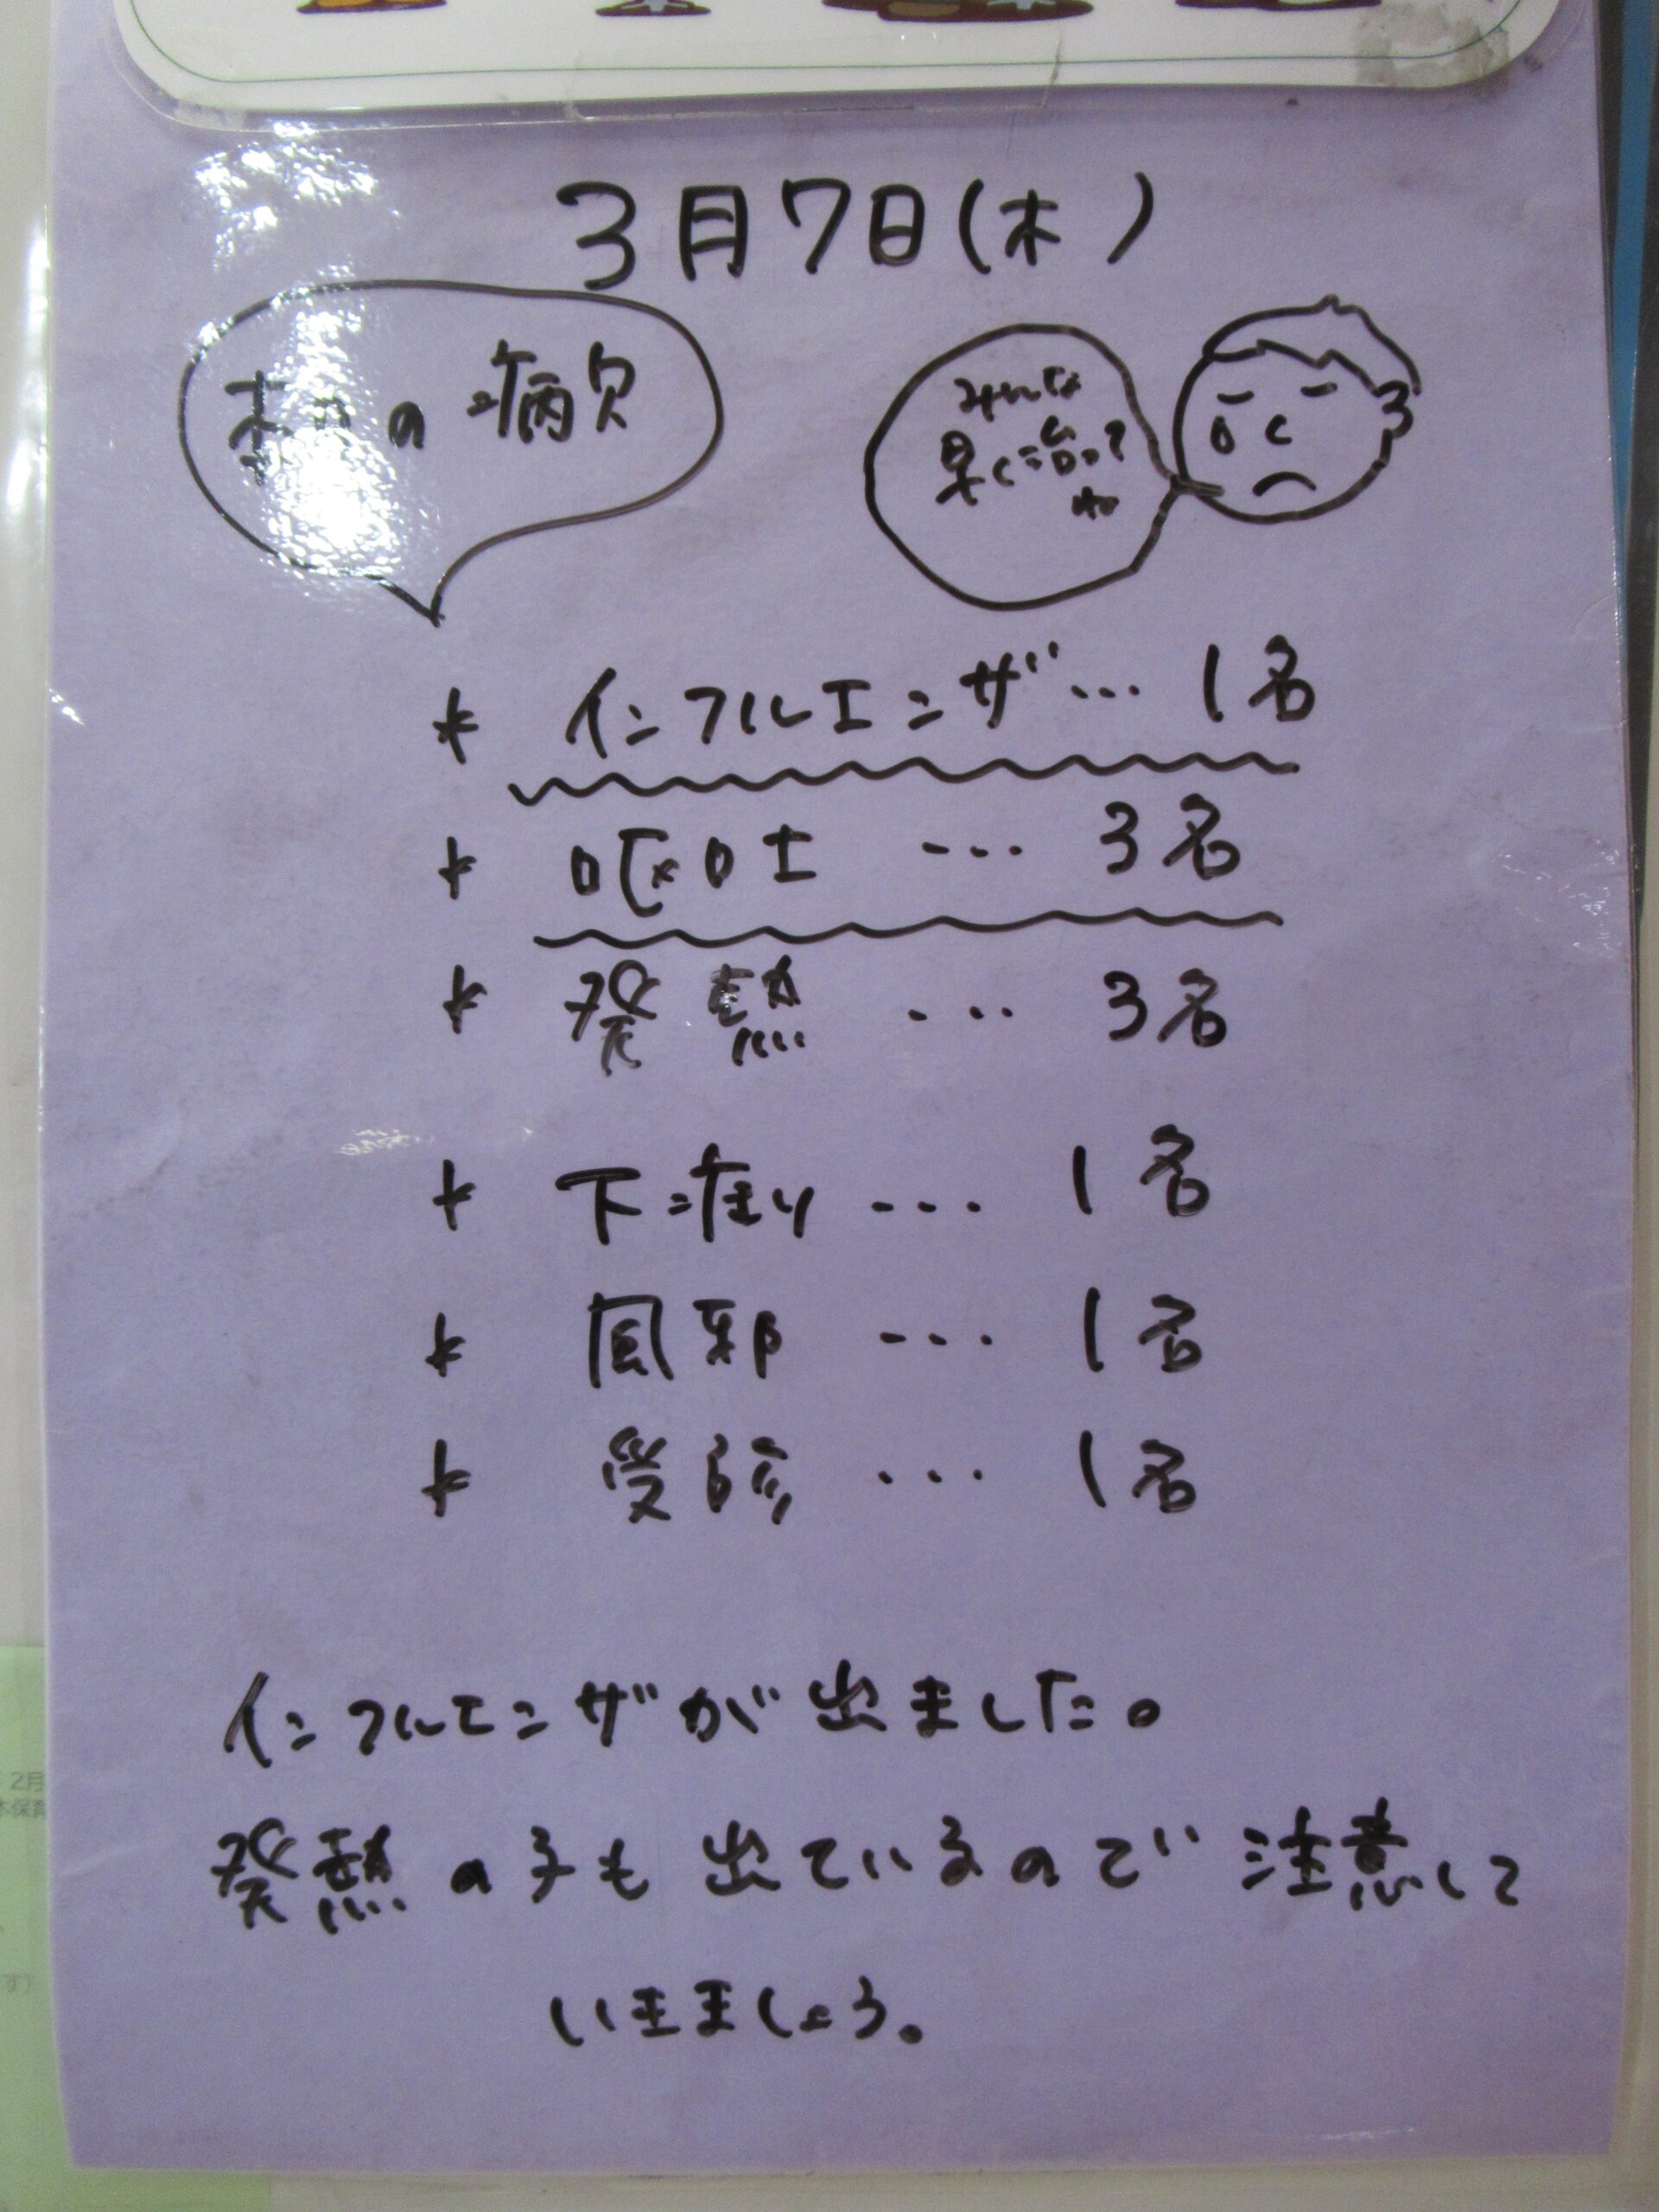 3月7日(木)
本日の病欠
みんな
早く治って
ね
* インフルエンザ… 1名
* 嘔吐 … 3名
* 発熱 … 3名
* 下痢り … 1名
* 風邪 … 1名
* 受診 … 1名
インフルエンザが出ました。
発熱の子も出ているので注意して
いきましょう。
2月
す)